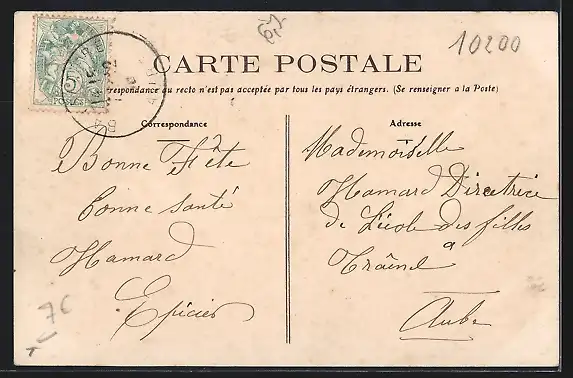 10200
CARTE POSTALE
correspondance au recto n'est pas acceptée par tous les pays étrangers. (Se renseigner à la Poste)
Correspondance
Bonne Fête
bonne santé
Hamard
Epicier
76
Adresse
Mademoiselle
Hamard Directrice
de L'école des filles
à
Traînel
Aube
5
POSTES